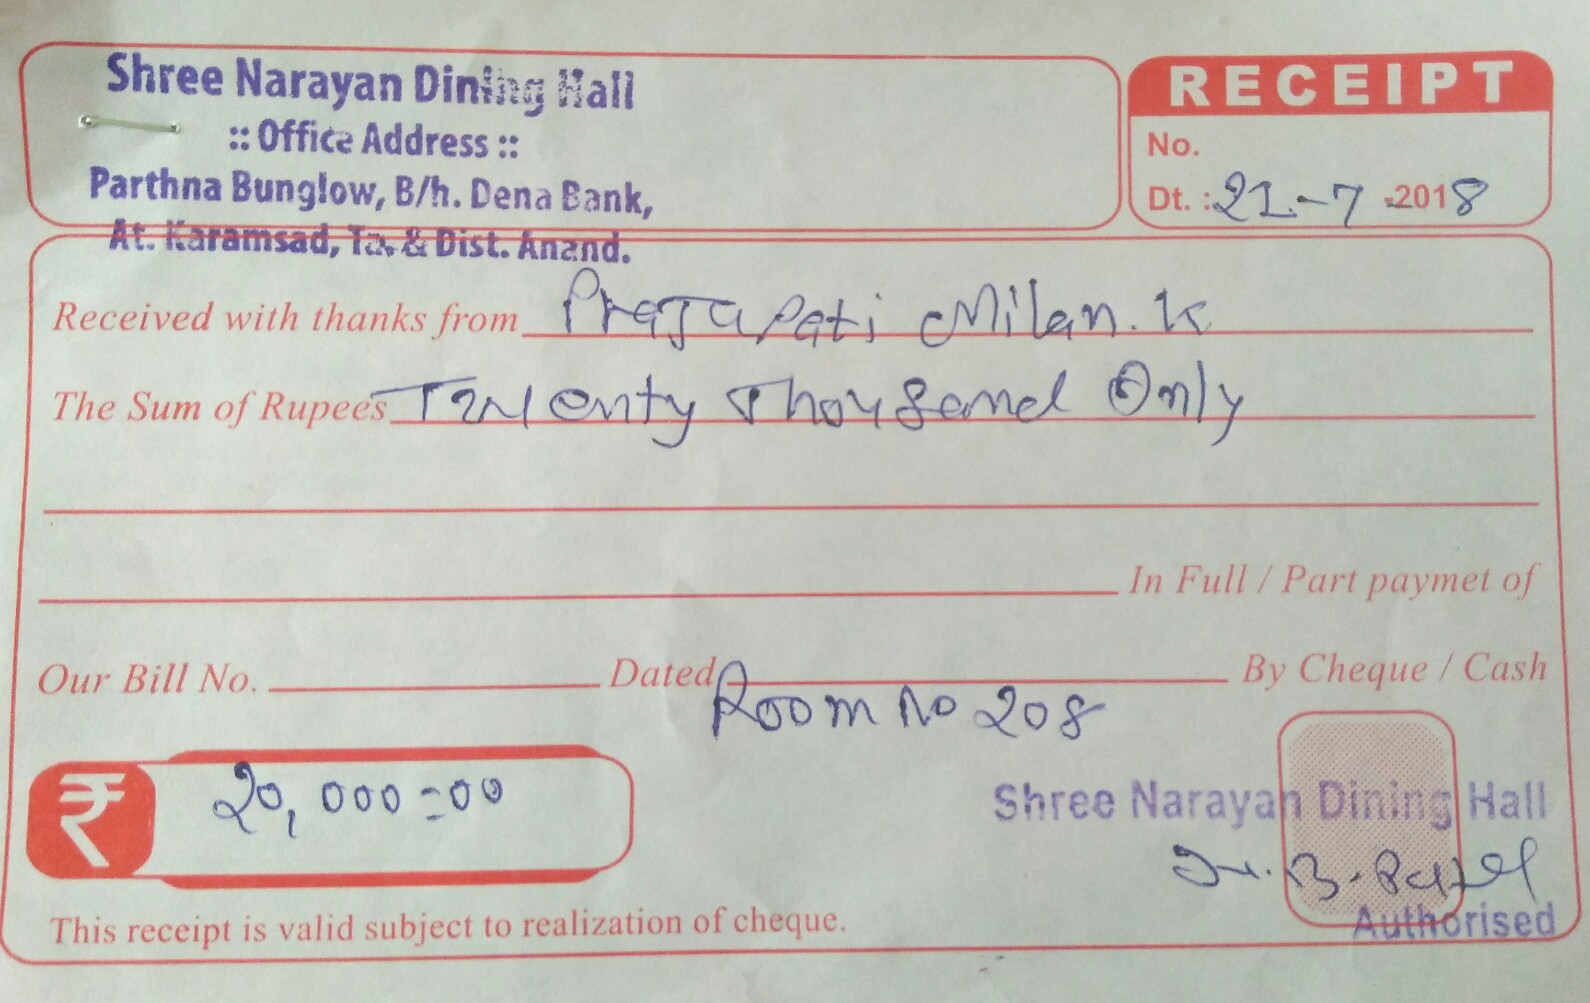 Shree Narayan Dining Hall
:: Office Address ::
Parthna Bunglow, B/h. Dena Bank,
At. Karamsad, Ta. & Dist. Anand.
RECEIPT
No.
Dt. : 21-7-2018
Received with thanks from Prajapati Milan. K
The Sum of Rupees Twenty Thousand Only
In Full / Part paymet of
Our Bill No. Dated By Cheque / Cash
Room No 208
₹ 20,000=00
Shree Narayan Dining Hall
B. Patel
Authorised
This receipt is valid subject to realization of cheque.